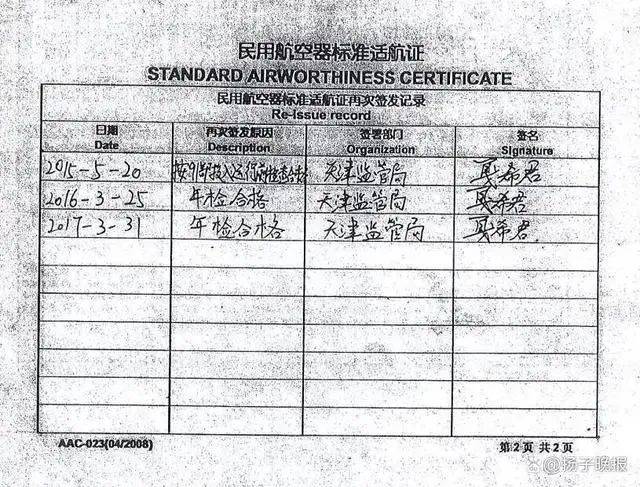 民用航空器标准适航证
STANDARD AIRWORTHINESS CERTIFICATE
民用航空器标准适航证再次签发记录
Re-Issue record
日期 再次签发原因 签署部门 签名
Date Description Organization Signature
2015-5-20 按91部投入运行前检查合格 天津监管局 希君
2016-3-25 年检合格 天津监管局 希君
2017-3-31 年检合格 天津监管局 希君
AAC-023(04/2008) 第2页 共2页
@扬子晚报